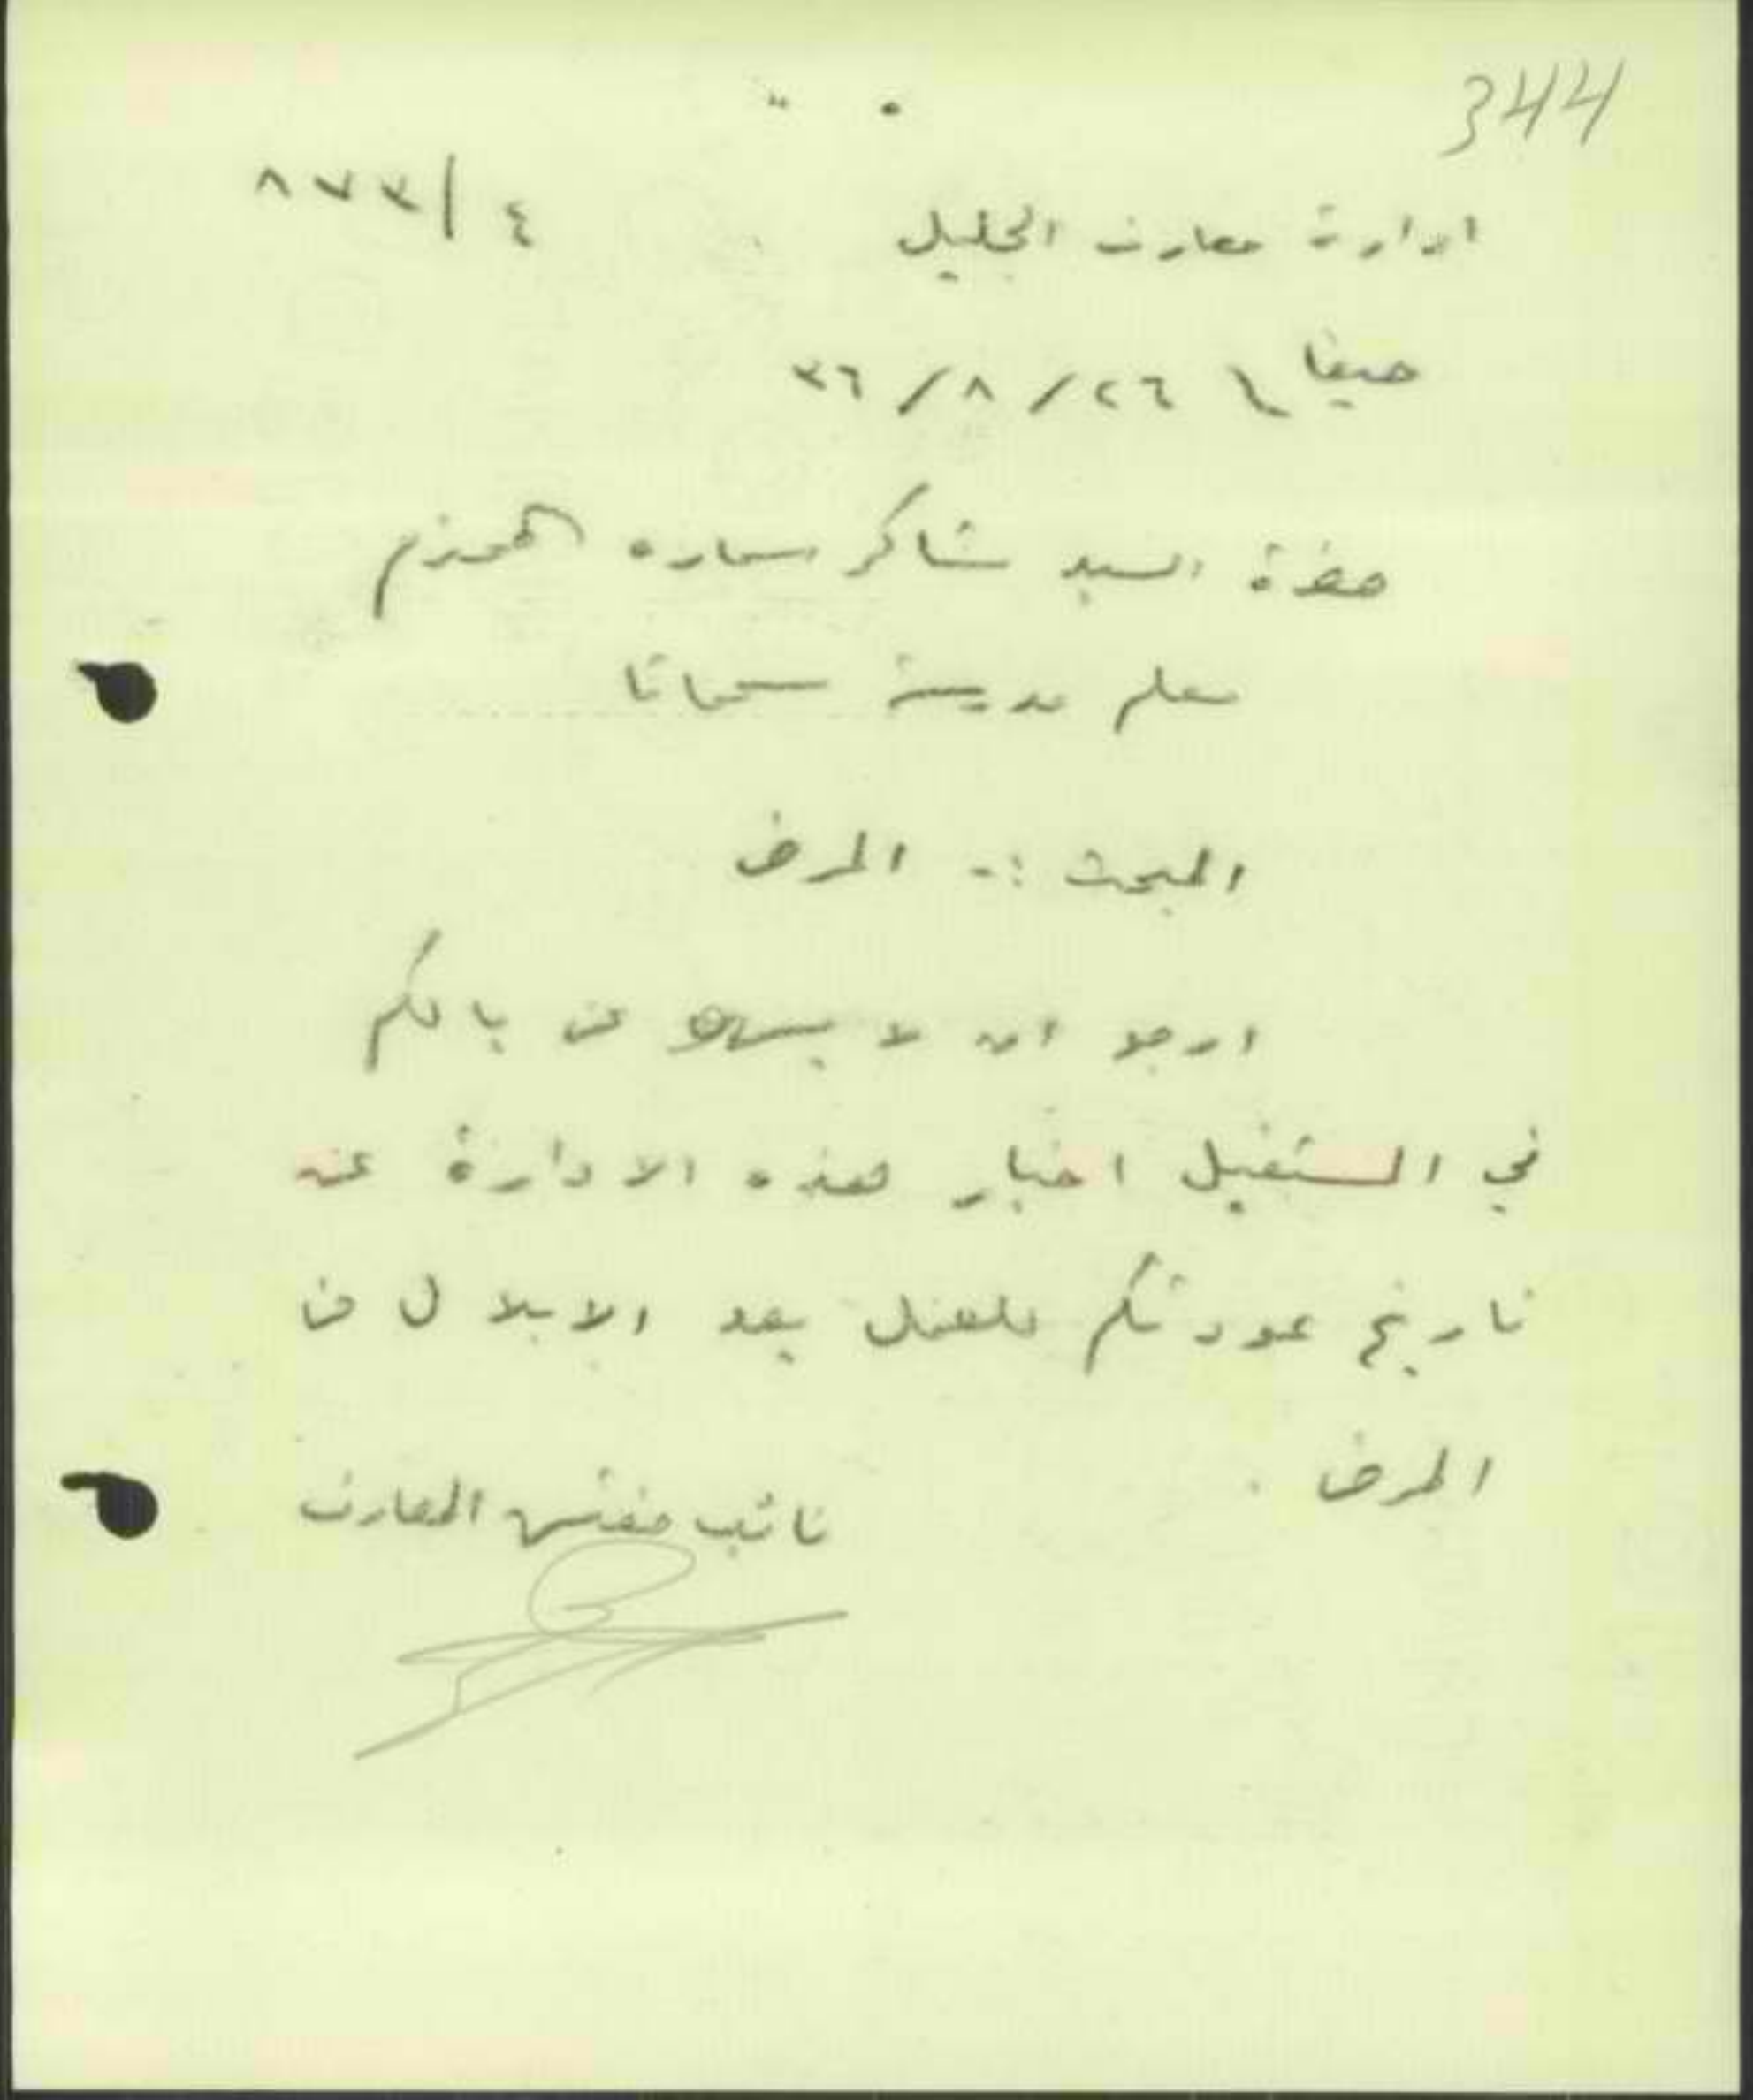 344
ادارة معارف الجليل ٤/٨٧٣
حيفا ٢٦/٨/٣٦
حضرة السيد شاكر سماره المحترم
معلم مدرسة سحماتا
المبحث :- المرض
ارجو ان لا يسهو عن بالكم
في المستقبل اخبار هذه الادارة عن
تاريخ عودتكم للعمل بعد الابلال من
المرض .
نائب مفتش المعارف